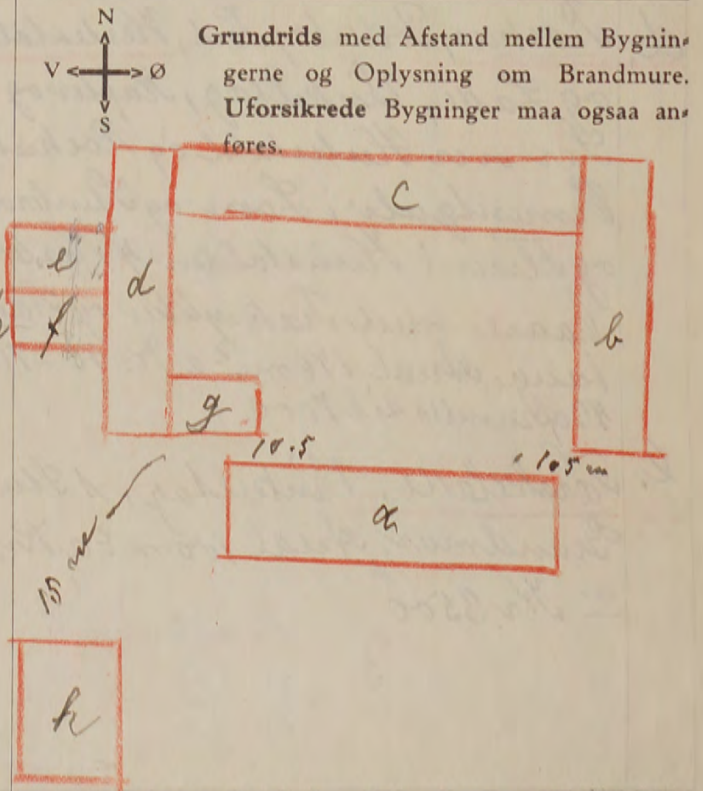 N
V Ø
S
Grundrids med Afstand mellem Bygnin-
gerne og Oplysning om Brandmure.
Uforsikrede Bygninger maa ogsaa an-
føres.
c
e
d
f
b
g
10.5
10.5 m
a
15 m
h